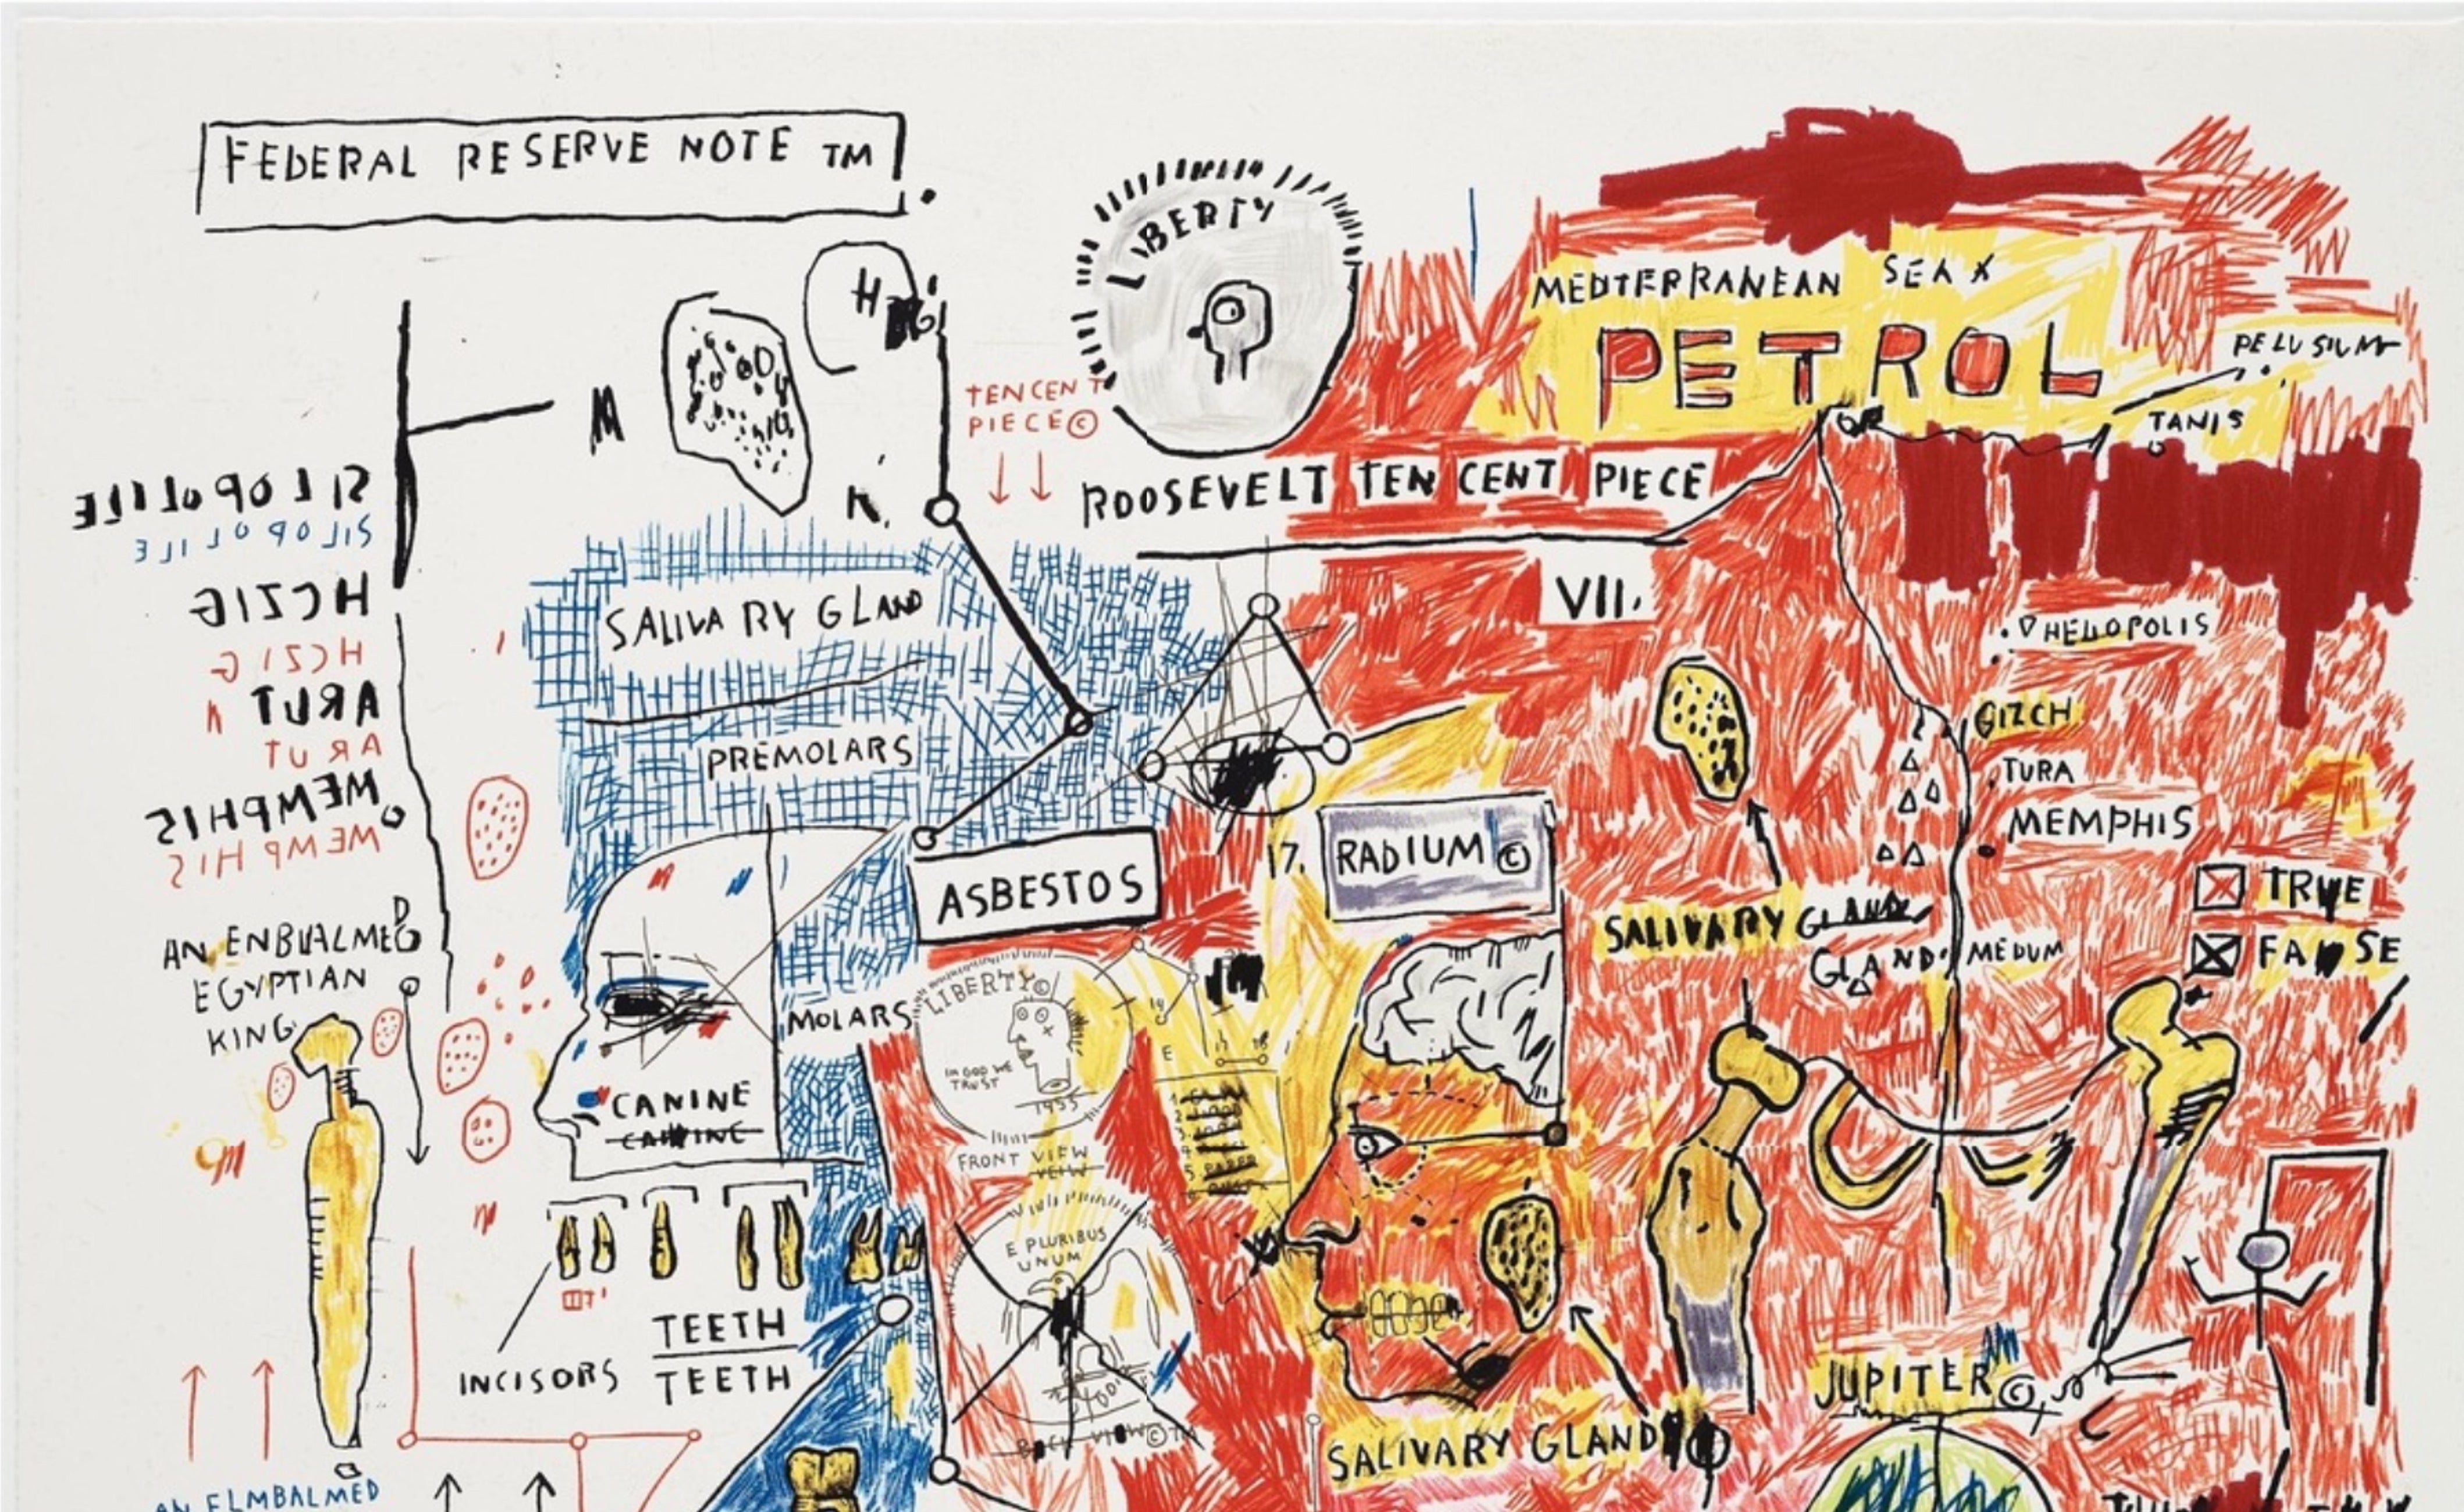 FEDERAL RESERVE NOTE TM
LIBERTY
TEN CENT
PIECE©
ROOSEVELT TEN CENT PIECE
MEDTERRANEAN SEA X
PETROL
PELUSIUM
TANIS
VII.
HELIOPOLIS
GIZCH
TURA
MEMPHIS
MEDUM
SILOPOLILE
SILOPOLILE
HCZIG
HCZIG
ARUT
ARUT
MEMPHIS
MEMPHIS
AN ENBUALMED
EGYPTIAN
KING
SALIVARY GLAND
PREMOLARS
ASBESTOS
17. RADIUM ©
MOLARS
CANINE
CANINE
LIBERTY©
IN GOD WE
TRUST
1955
FRONT VIEW
VEIW
E PLURIBUS
UNUM
BACK VIEW © TM
INCISORS
TEETH
TEETH
SALIVARY GLAND
GLAND
TRUE
FALSE
SALIVARY GLAND
JUPITER ©
AN ELMBALMED